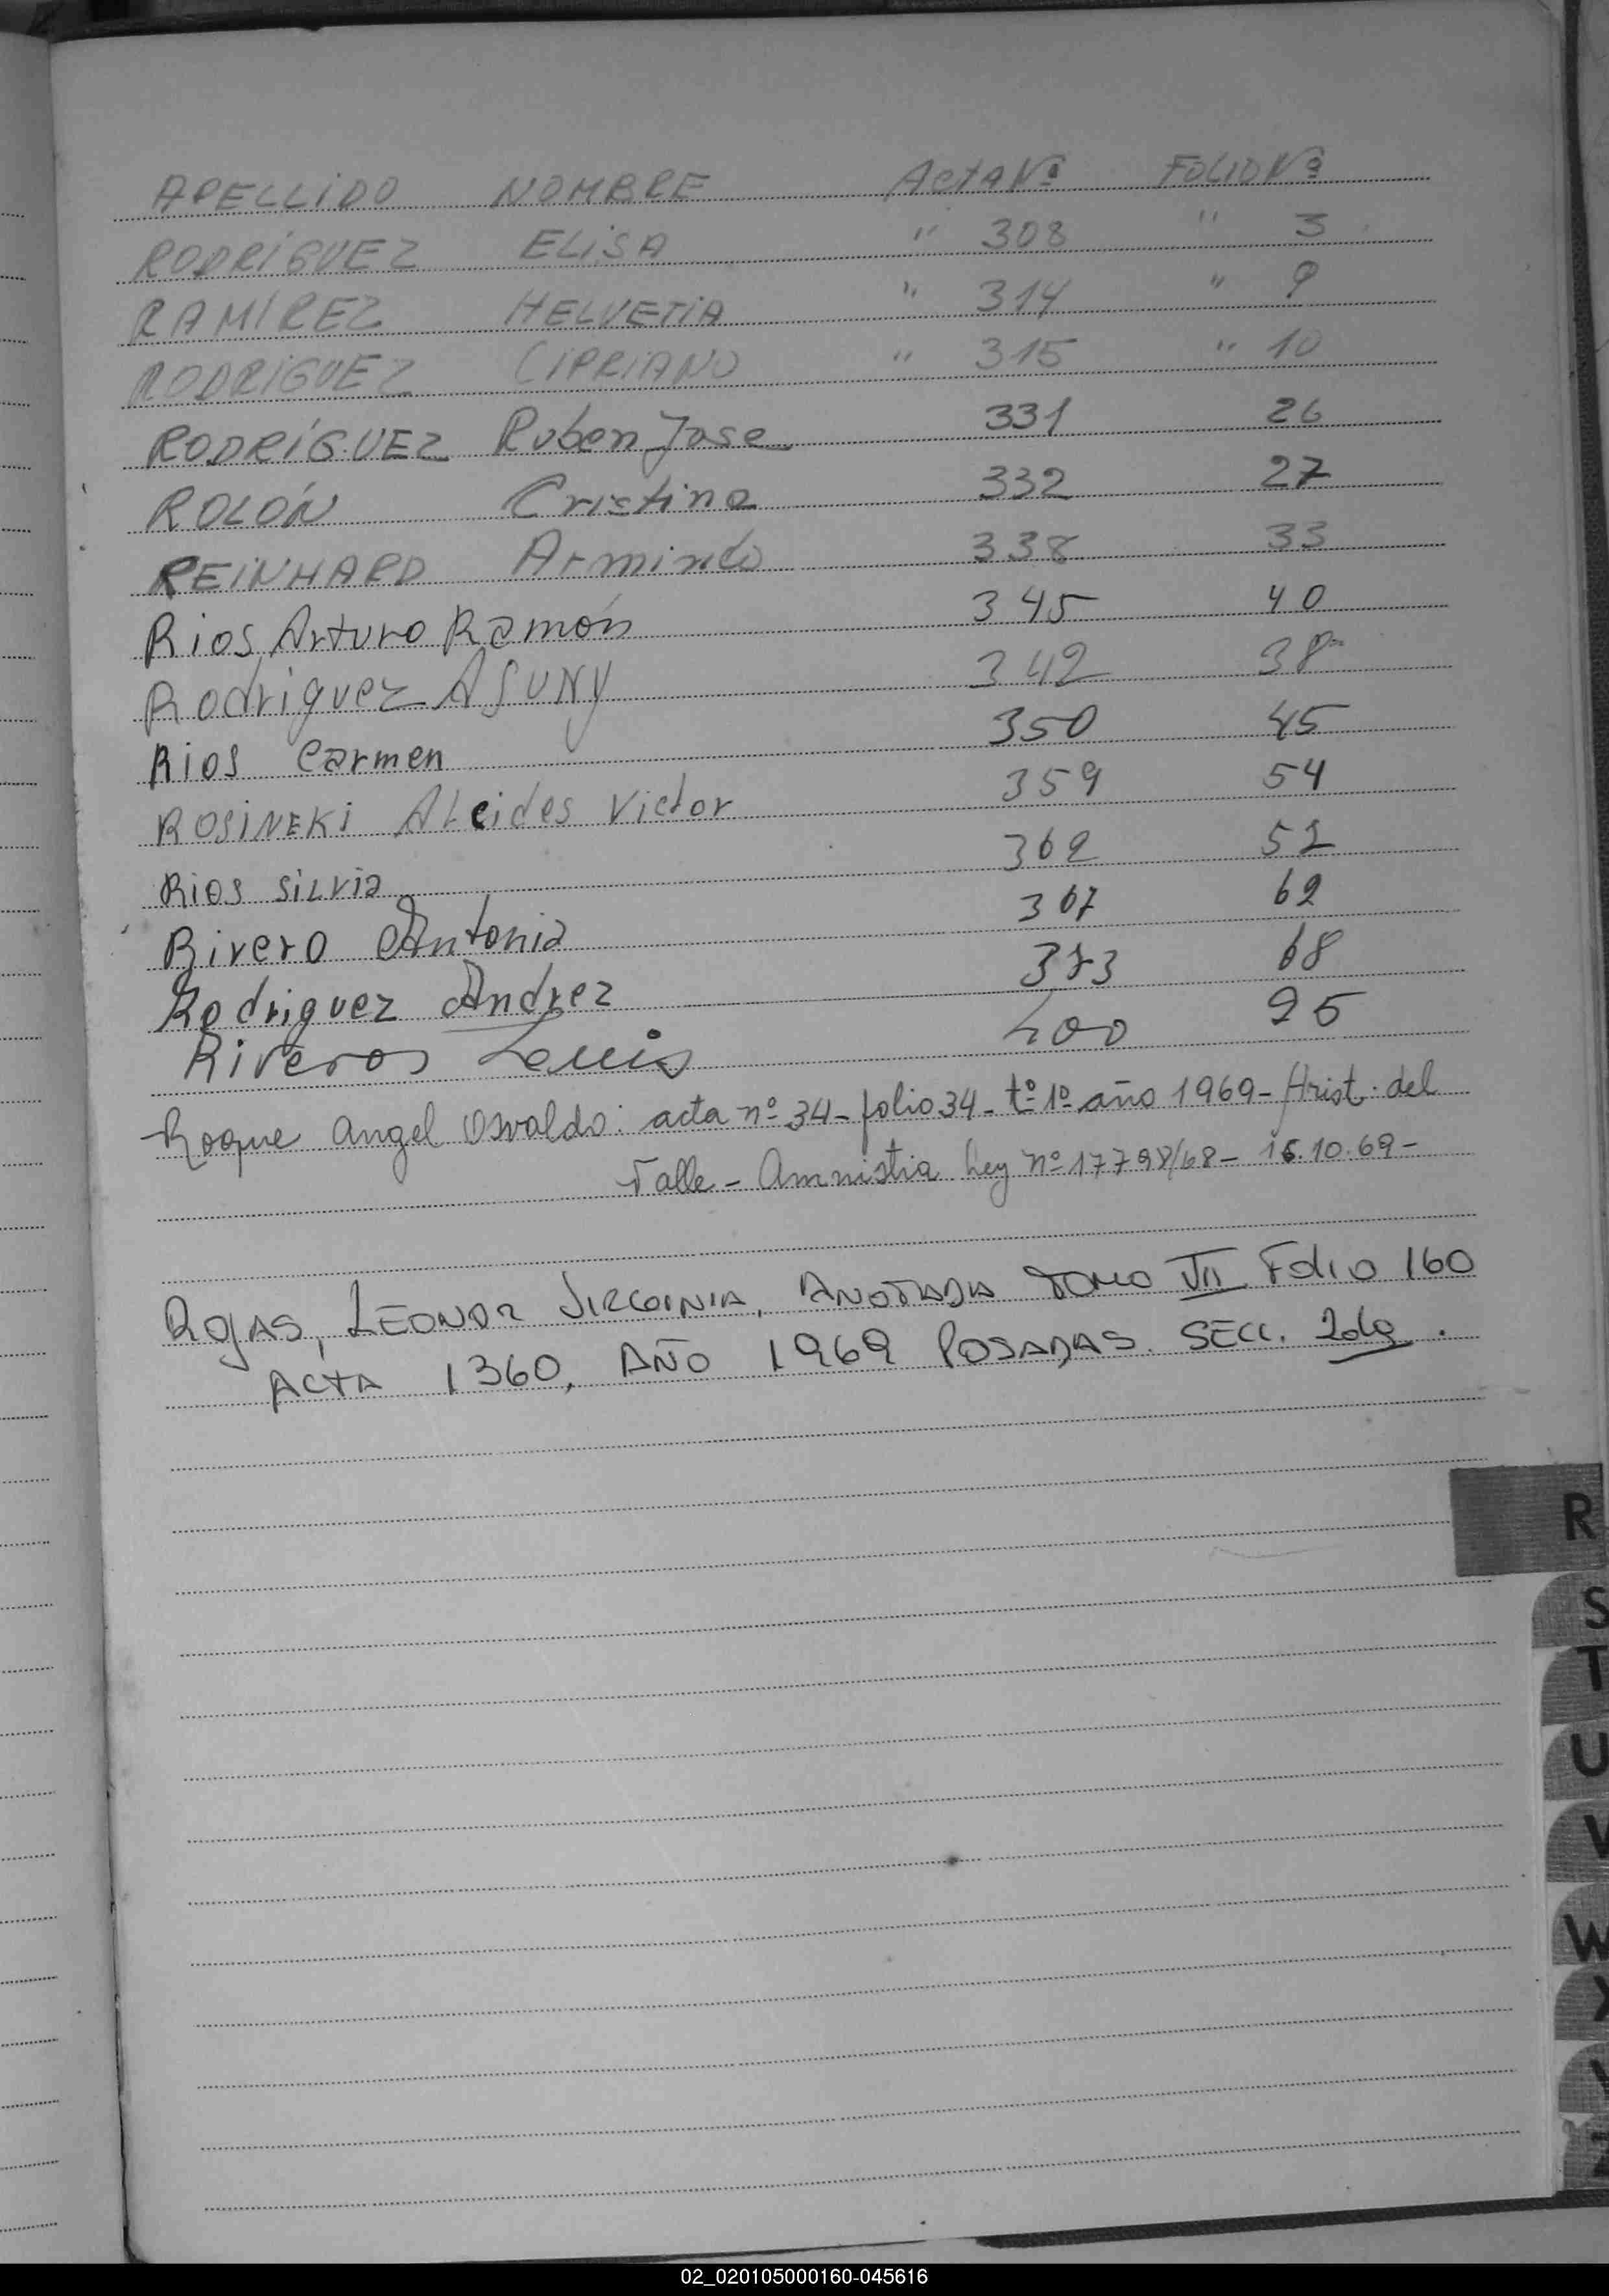 APELLIDO NOMBRE ACTA Nº FOLIO Nº
RODRÍGUEZ ELISA " 308 " 3
RAMÍREZ HELVETIA " 314 " 9
RODRIGUEZ CIPRIANO " 315 " 10
RODRÍGUEZ Ruben Jose 331 26
ROLÓN Cristina 332 27
REINHARD Armindo 338 33
Rios Arturo Ramón 345 40
Rodriguez ASUNY 342 38
Rios Carmen 350 45
ROSINEKi ALcides Victor 359 54
Rios SiLvia 362 52
Rivero Antonia 367 62
Rodriguez Andrez 373 68
Riveros Luis 400 95
Roque Angel Osvaldo: acta nº 34 - folio 34 - tº 1º año 1969 - Arist. del
Valle - Amnistia Ley nº 17798/68 - 15.10.69 -
ROJAS, LEONOR VIRGINIA, ANOTADA TOMO VII FOLIO 160
ACTA 1360, AÑO 1969 POSADAS. SECC. 2da.
R
S
T
U
V
W
X
Y
Z
02_020105000160-045616